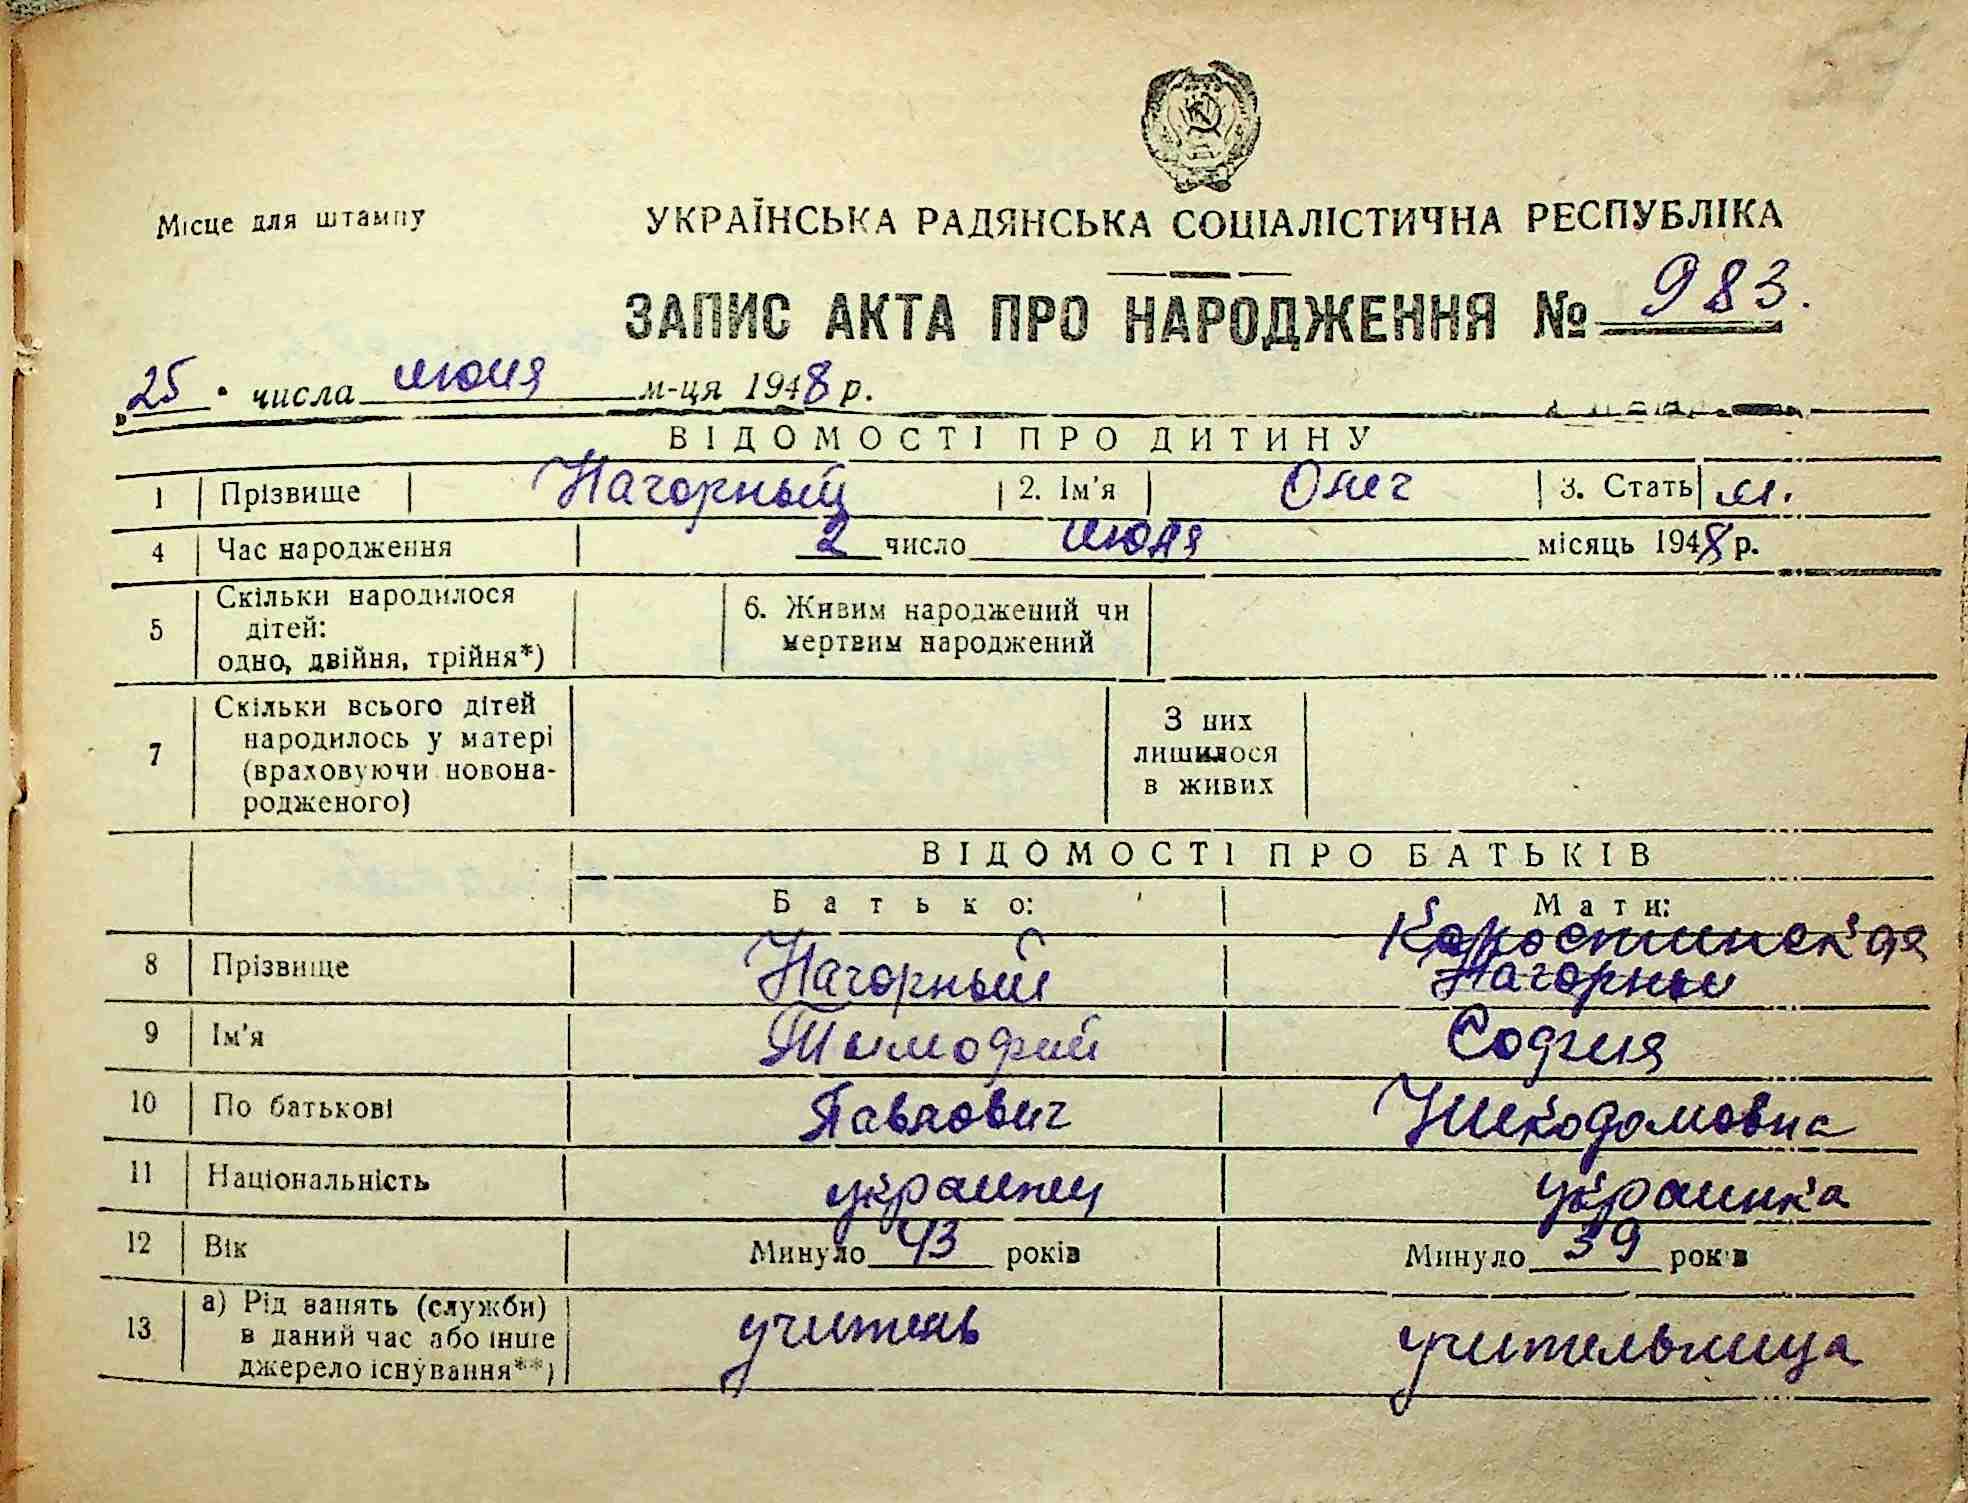 Місце для штампу
УКРАЇНСЬКА РАДЯНСЬКА СОЦІАЛІСТИЧНА РЕСПУБЛІКА
ЗАПИС АКТА ПРО НАРОДЖЕННЯ № 983.
„25" числа июня м-ця 1948 р.
ВІДОМОСТІ ПРО ДИТИНУ
1 Прізвище Нагорный 2. Ім'я Олег 3. Стать м.
4 Час народження 2 число июня місяць 1948 р.
5 Скільки народилося
дітей:
одно, двійня, трійня*)
6. Живим народжений чи
мертвим народжений
7 Скільки всього дітей
народилось у матері
(враховуючи новона-
родженого)
З них
лишилося
в живих
ВІДОМОСТІ ПРО БАТЬКІВ
Батько: Мати:
Коростинская
8 Прізвище Нагорный Нагорны
9 Ім'я Тимофий София
10 По батькові Павлович Никодомовна
11 Національність украинец украинка
12 Вік Минуло 43 років Минуло 39 років
13 а) Рід занять (служби)
в даний час або інше
джерело існування**)
учитель учительница